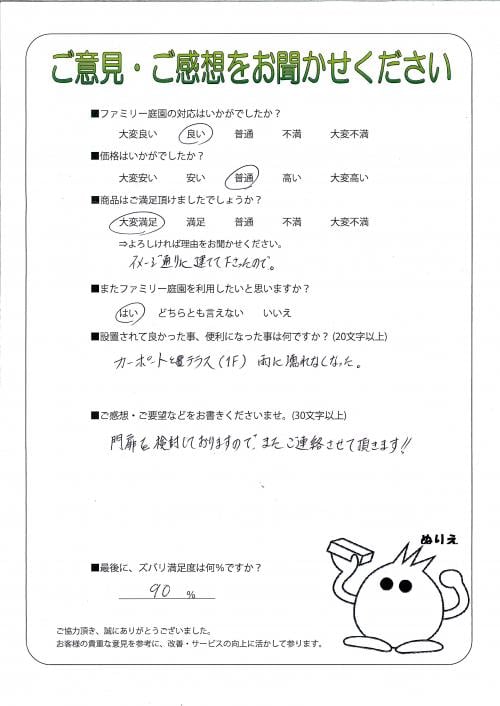 ご意見・ご感想をお聞かせください
■ファミリー庭園の対応はいかがでしたか？
大変良い 良い 普通 不満 大変不満
■価格はいかがでしたか？
大変安い 安い 普通 高い 大変高い
■商品はご満足頂けましたでしょうか？
大変満足 満足 普通 不満 大変不満
⇒よろしければ理由をお聞かせください。
イメージ通りに建てて下さったので。
■またファミリー庭園を利用したいと思いますか？
はい どちらとも言えない いいえ
■設置されて良かった事、便利になった事は何ですか？(20文字以上)
カーポートとテラス(1F) 雨に濡れなくなった。
■ご感想・ご要望などをお書きくださいませ。(30文字以上)
門扉を検討しておりますので、またご連絡させて頂きます!!
ぬりえ
■最後に、ズバリ満足度は何%ですか？
90 %
ご協力頂き、誠にありがとうございました。
お客様の貴重な意見を参考に、改善・サービスの向上に活かして参ります。